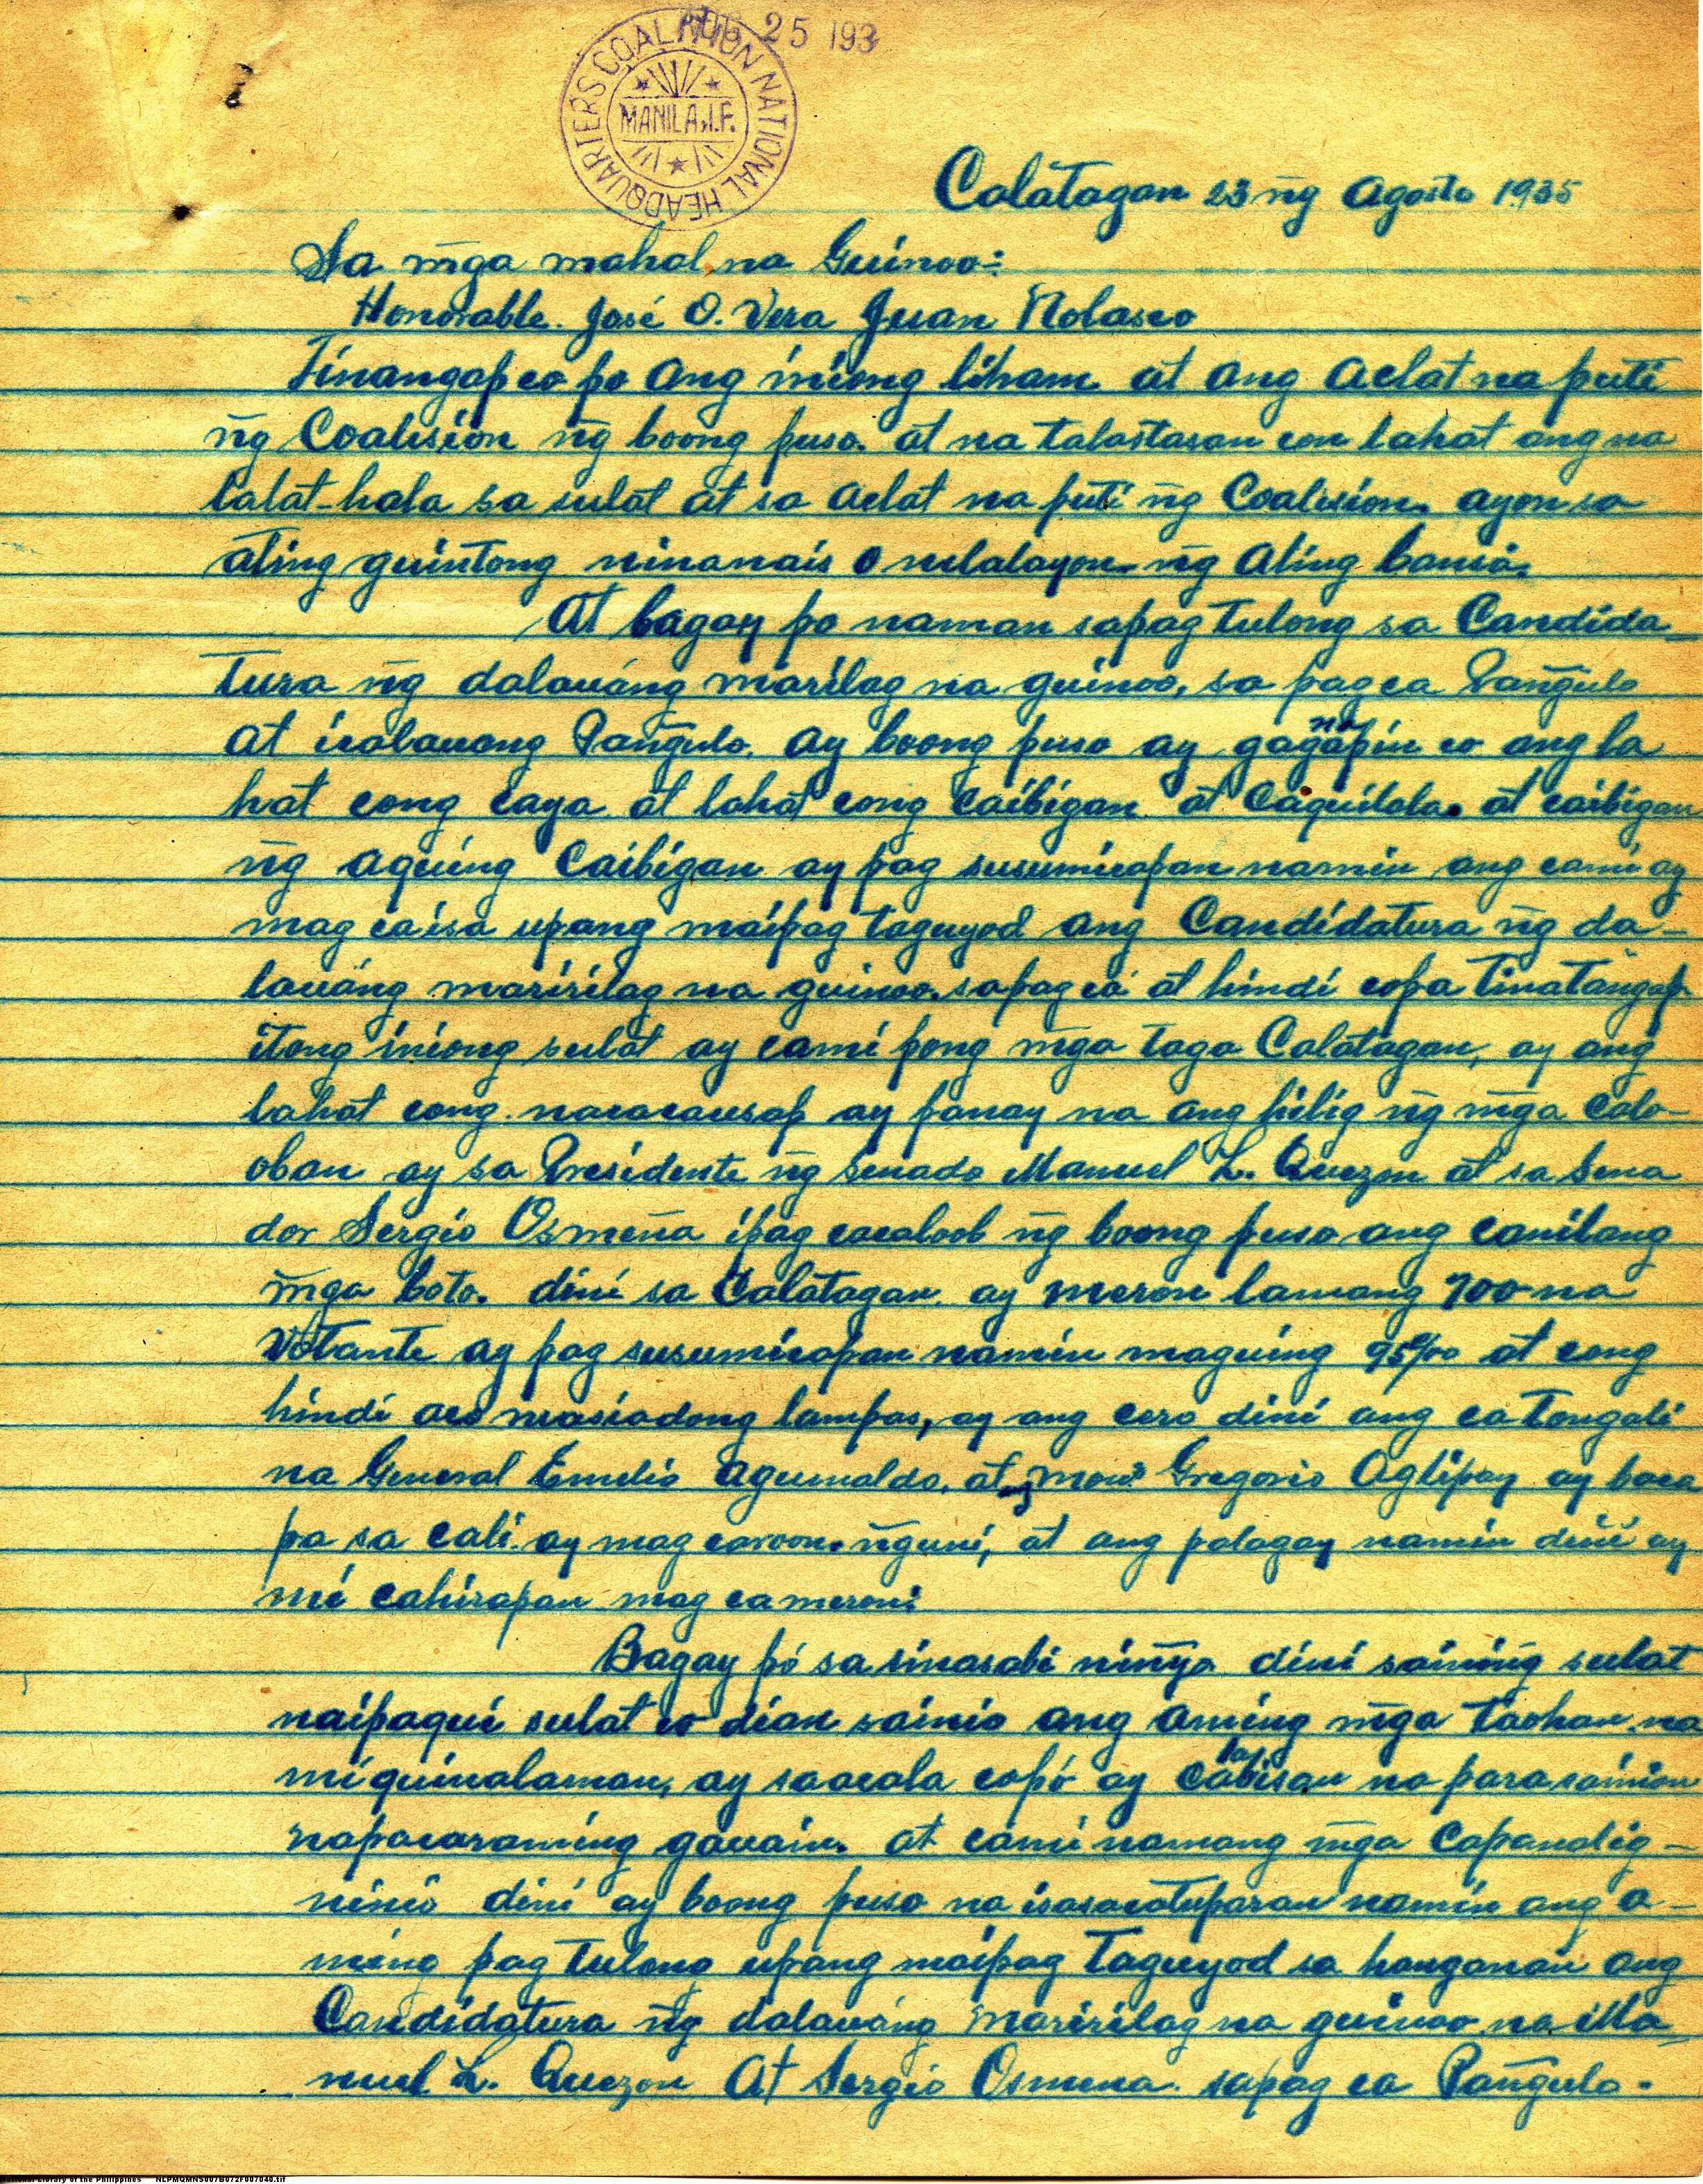 AUG 25 193
COALITION NATIONAL HEADQUARTERS
MANILA, I.F.
Calatagan 23 n̄g Agosto 1935
Sa m̄ga mahal na Guinoo:
Honorable. José O. Vera Juan Nolasco
Tinangap co po ang iniong liham at ang aclat na puti
n̄g Coalision n̄g boong puso. at na talastasan con lahat ang na
lalat-hala sa sulat at sa aclat na puti n̄g Coalision. ayon sa
ating guintong ninanais o nilalayon n̄g ating bansa.
At bagay po naman sapag tulong sa Candida_
tura n̄g dalauáng marilag na guinoo, sa pagca Pan̄gulo
at icalauang Pan̄gulo. ay boong puso ay gaganapin co ang la
hat cong caya at lahat cong caibigan at Caquilala. at caibigan
n̄g aquing Caibigan ay pag susumicapan namin ang cami ay
mag caisa upang maipag taguyod ang Candidatura n̄g da-
lauáng maririlag na guinoo. sapag cá at hindi copa tinatangap
itong iniong sulat ay cami pong m̄ga taga Calatagan, ay ang
lahat cong nacacausap ay panay na ang hilig n̄g m̄ga calo-
oban ay sa Presidente n̄g senado Manuel L. Quezon at sa Sena
dor Sergio Osmeña ipag cacaloob n̄g boong puso ang canilang
m̄ga boto. dini sa Calatagan ay meron lamang 700 na
votante ay pag susumicapan namin maguing 95%00 at cong
hindi aco masiadong lampas, ay ang cero dini ang catongali
na General Emilio Aguinaldo. at ng Mons. Gregorio Aglipay ay baca
pa sa cali ay mag caroon. n̄guni, at ang palagay namin dini ay
mi cahirapan mag cameron:
Bagay pó sa sinasabi nin̄yo dini sainin̄g sulat
naipaqui sulat co dian sainio ang aming m̄ga taohan na
mi quinalaman, ay saacala copó ay Calabisan na para sainion
napacaraming gauain. at cami namang m̄ga capandig-
ninio dini ay boong puso na isasacatuparan namin ang a-
ming pag tulong upang maipag Taguyod sa hanganan ang
Candidatura n̄g dalauáng maririlag na guinoo na Ma_
nuel L. Quezon At Sergio Osmena. sapag ca Pan̄gulo.
National Library of the Philippines NLPMQMNS007B072F007040.tif